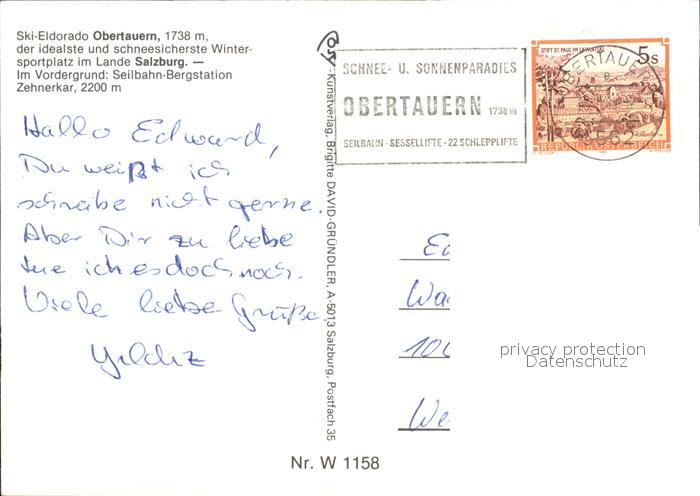 Ski-Eldorado Obertauern, 1738 m,
der idealste und schneesicherste Winter-
sportplatz im Lande Salzburg. —
Im Vordergrund: Seilbahn-Bergstation
Zehnerkar, 2200 m
Hallo Edward,
Du weißt ich
schreibe nicht gerne.
Aber Dir zu liebe
tue ich es doch noch.
Viele liebe Grüße
Yildiz
Kunstverlag, Brigitte DAVID-GRÜNDLER, A-5013 Salzburg, Postfach 35
SCHNEE- U. SONNENPARADIES
OBERTAUERN 1738 m
SEILBAHN - SESSELLIFTE - 22 SCHLEPPLIFTE
STIFT ST. PAUL IM LAVANTTAL
5 S
OBERTAUERN
REPUBLIK ÖSTERREICH
Ed
Wa
100
We
privacy protection
Datenschutz
Nr. W 1158